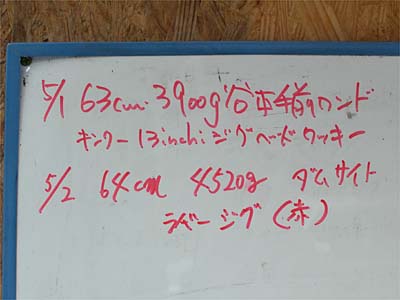 5/1 63cm 3900g 谷本手前ワンド
キンクー 13inchi ジグヘッドワッキー
5/2 64cm 4520g ダムサイト
ラバージグ(赤)